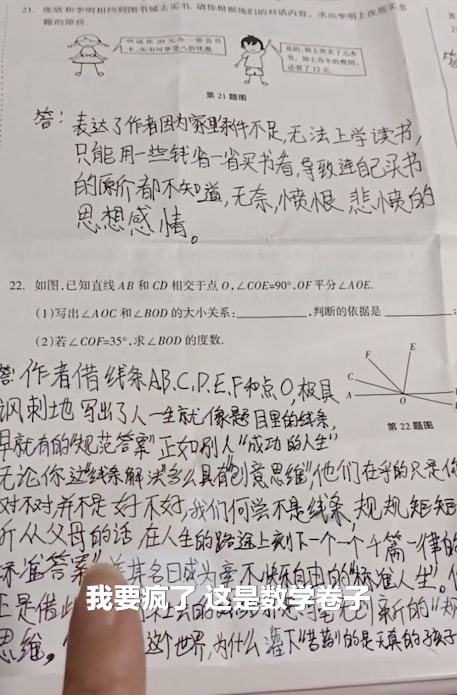 21. 张欣和李明相约到图书城去买书. 请你根据他们的对话内容, 求出李明上次所买书
籍的原价.
听说花20元办一张会员
卡, 买书可享受八折优惠.
是的, 我上次买了几本
书, 加上办卡的费用,
还省了12元.
第21题图
答:表达了作者因为家里条件不足,无法上学读书,
只能用一些钱省一省买书看,导致连自己买书
的原价都不知道,无奈,愤恨,悲愤的
思想感情。
22. 如图,已知直线AB和CD相交于点O,∠COE=90°,OF平分∠AOE.
(1)写出∠AOC和∠BOD的大小关系: ,判断的依据是 ;
(2)若∠COF=35°,求∠BOD的度数.
E
F
C
A
O
第22题图
答:作者借线条AB.C.D.E.F和点O,极具
讽刺地写出了人一生就像题目里的线条,
早就有的"规范答案"正如别人"成功的人生"
无论你这"线条解决"多么具有"创意思维",他们在乎的只是你
对不对并不是好不好,我们何尝不是线条,规规矩矩
听从父母的话,在人生的路途上刻下一个一个千篇一律的
标准答案"
成为 不 自由的"标准人生"。
正是借
思维。 这个世界,为什么灌下"苦药"的是天真的孩子
我要疯了 这是数学卷子